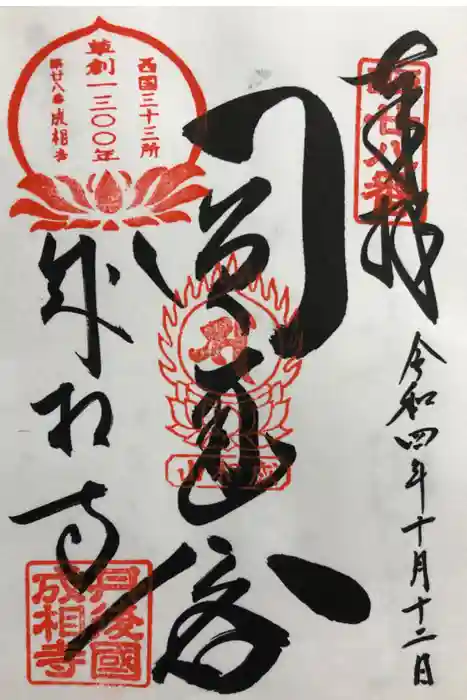 奉拝
西国廿八番
令和四年十月十二日
圓通閣
成相山
西国三十三所
草創一三〇〇年
第廿八番 成相寺
成相寺
丹後國
成相寺